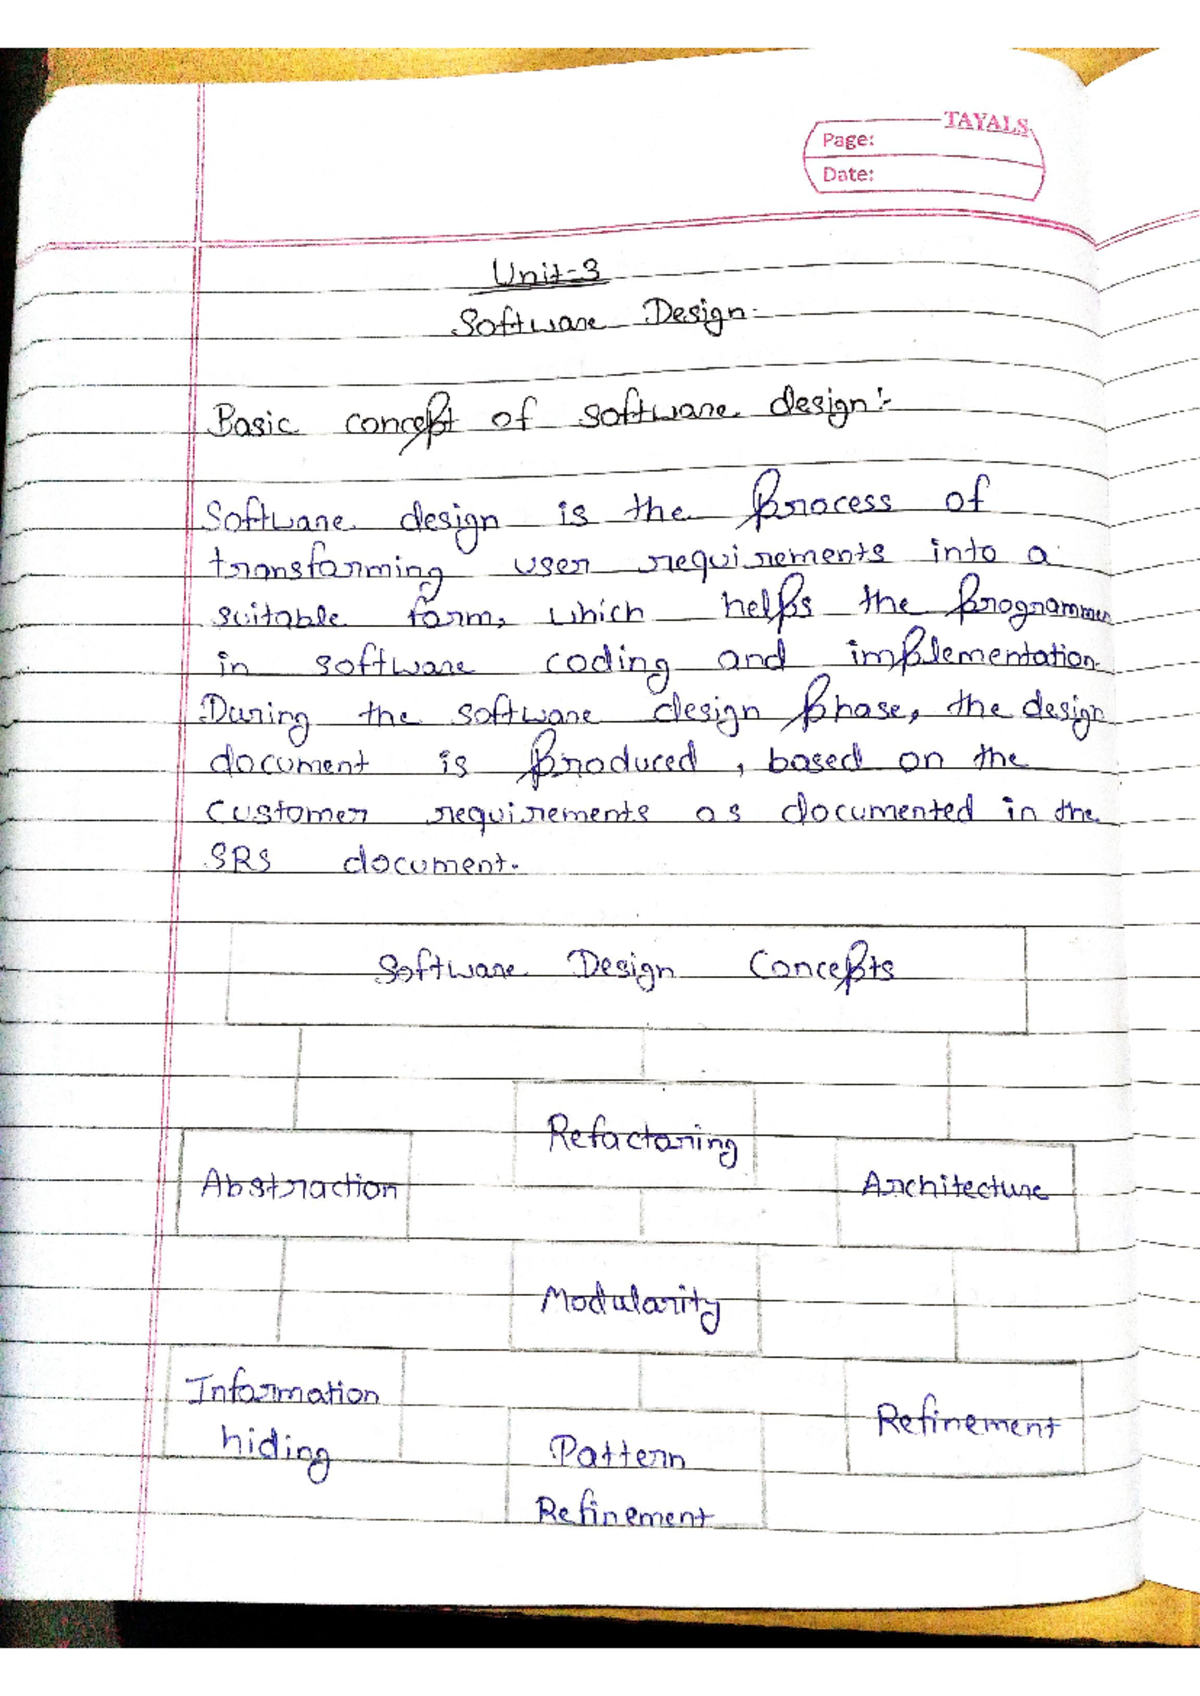 TAYALS
Page:
Date:
Unit-3
Software Design.
Basic concept of software design:-
Software design is the process of
transforming user requirements into a
suitable form, which helps the programmer
in software coding and implementation.
During the software design phase, the design
document is produced, based on the
customer requirements as documented in the
SRS document.
Software Design Concepts
Refactoring
Abstraction
Architecture
Modularity
Information
hiding
Refinement
Pattern
Refinement